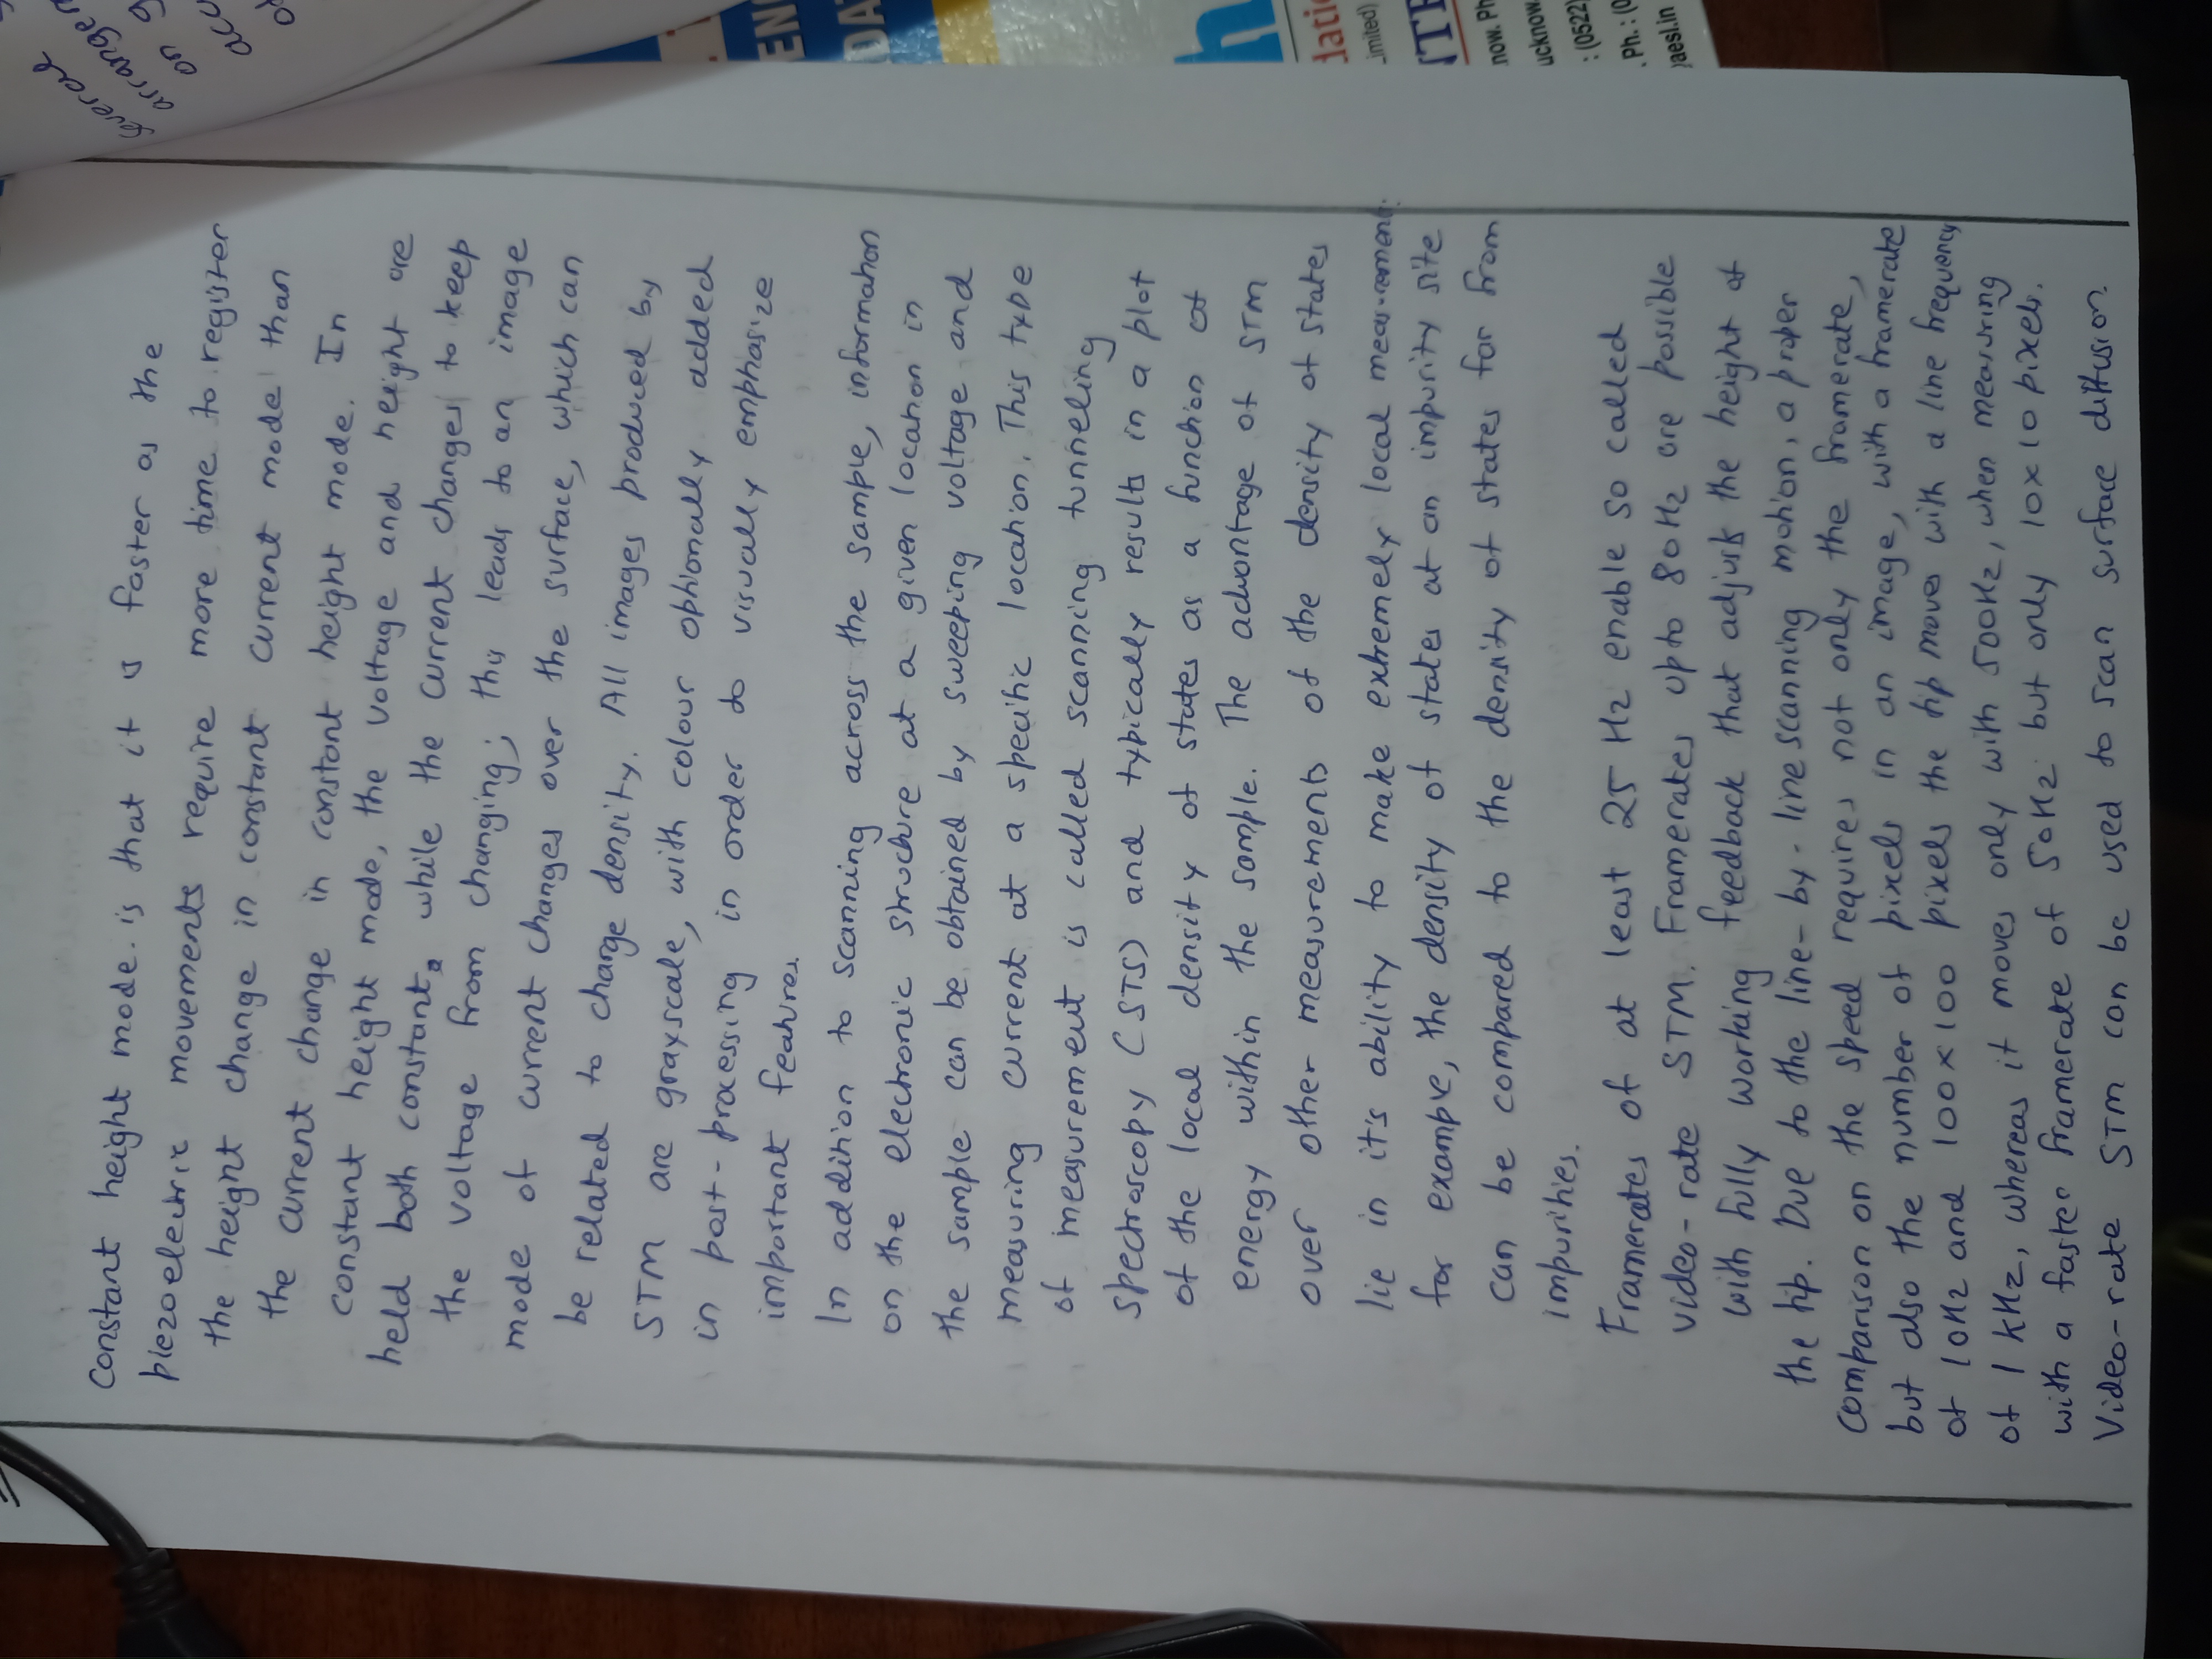 constant height mode. is that it is faster as the
piezoelectric movements require more time to register
the height change in constant current mode than
the current change in constant height mode. In
constant height mode, the voltage and height are
held both constant, while the current changes to keep
the voltage from changing; this leads to an image
mode of current changes over the surface, which can
be related to charge density. All images produced by
STM are grayscale, with colour optionally added
in post-processing in order to visually emphasize
important features.
In addition to scanning across the sample, information
on the electronic structure at a given location in
the sample can be obtained by sweeping voltage and
measuring current at a specific location. This type
of measurement is called scanning tunneling
spectroscopy (STS) and typically results in a plot
of the local density of states as a function of
energy within the sample. The advantage of STM
over other measurements of the density of states
lie in it's ability to make extremely local measurement:
for example, the density of states at an impurity site
can be compared to the density of states far from
impurities.
Framerates of at least 25 Hz enable so called
video-rate STM. Framerates upto 80Hz are possible
with fully working feedback that adjusts the height of
the tip. Due to the line-by-line scanning motion, a proper
comparison on the speed requires not only the framerate,
but also the number of pixels in an image, with a framerate
of 10Hz and 100x100 pixels the tip moves with a line frequency
of 1 kHz, whereas it moves only with 500Hz, when measuring
with a faster framerate of 50Hz but only 10x10 pixels.
Video-rate STM can be used to scan surface diffusion.
Several
on
imited)
Ph
: (0522)
. Ph. : (0
aesl.in